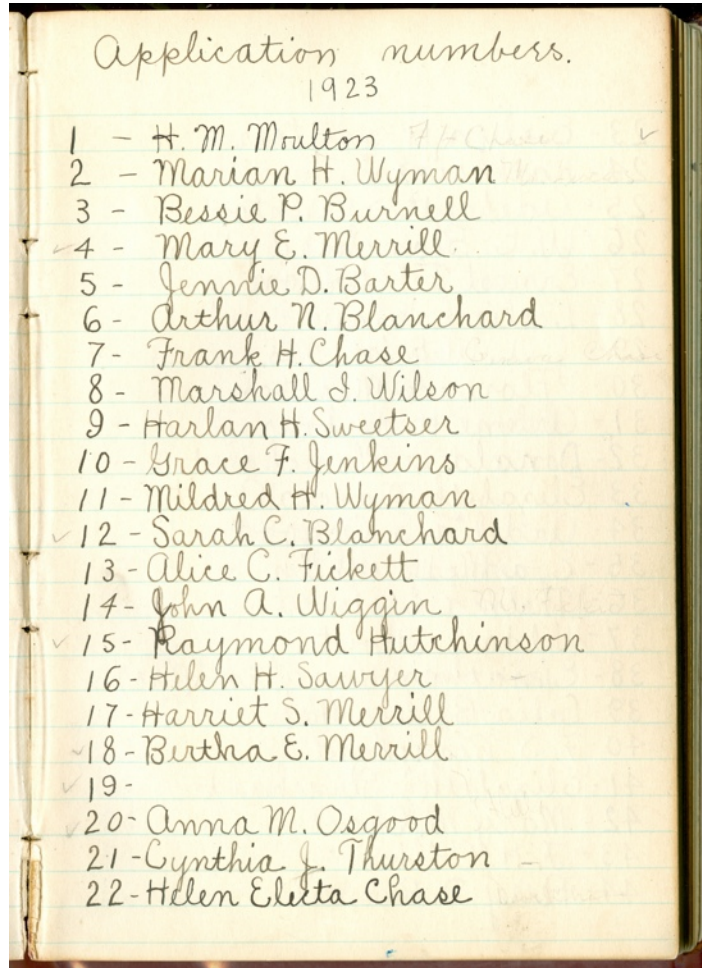 Application numbers.
1923
1 - H. M. Moulton
2 - Marian H. Wyman
3 - Bessie P. Burnell
✓4 - Mary E. Merrill
5 - Jennie D. Barter
6 - Arthur N. Blanchard
7 - Frank H. Chase
8 - Marshall I. Wilson
9 - Harlan H. Sweetser
10 - Grace F. Jenkins
11 - Mildred H. Wyman
✓12 - Sarah C. Blanchard
13 - Alice C. Fickett
14 - John A. Wiggin
✓15 - Raymond Hutchinson
16 - Helen H. Sawyer
17 - Harriet S. Merrill
✓18 - Bertha E. Merrill
✓19 -
✓20 - Anna M. Osgood
21 - Cynthia J. Thurston -
22 - Helen Electa Chase